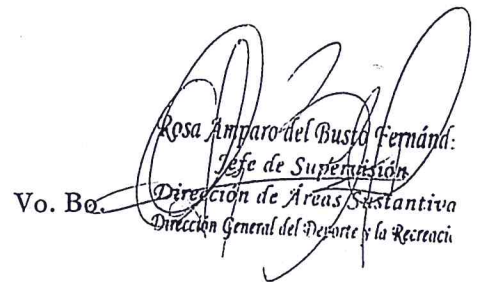 Rosa Amparo del Busto Fernánd:
Jefe de Supervisión
Vo. Bo.
Dirección de Áreas Sustantiva
Dirección General del Deporte y la Recreació